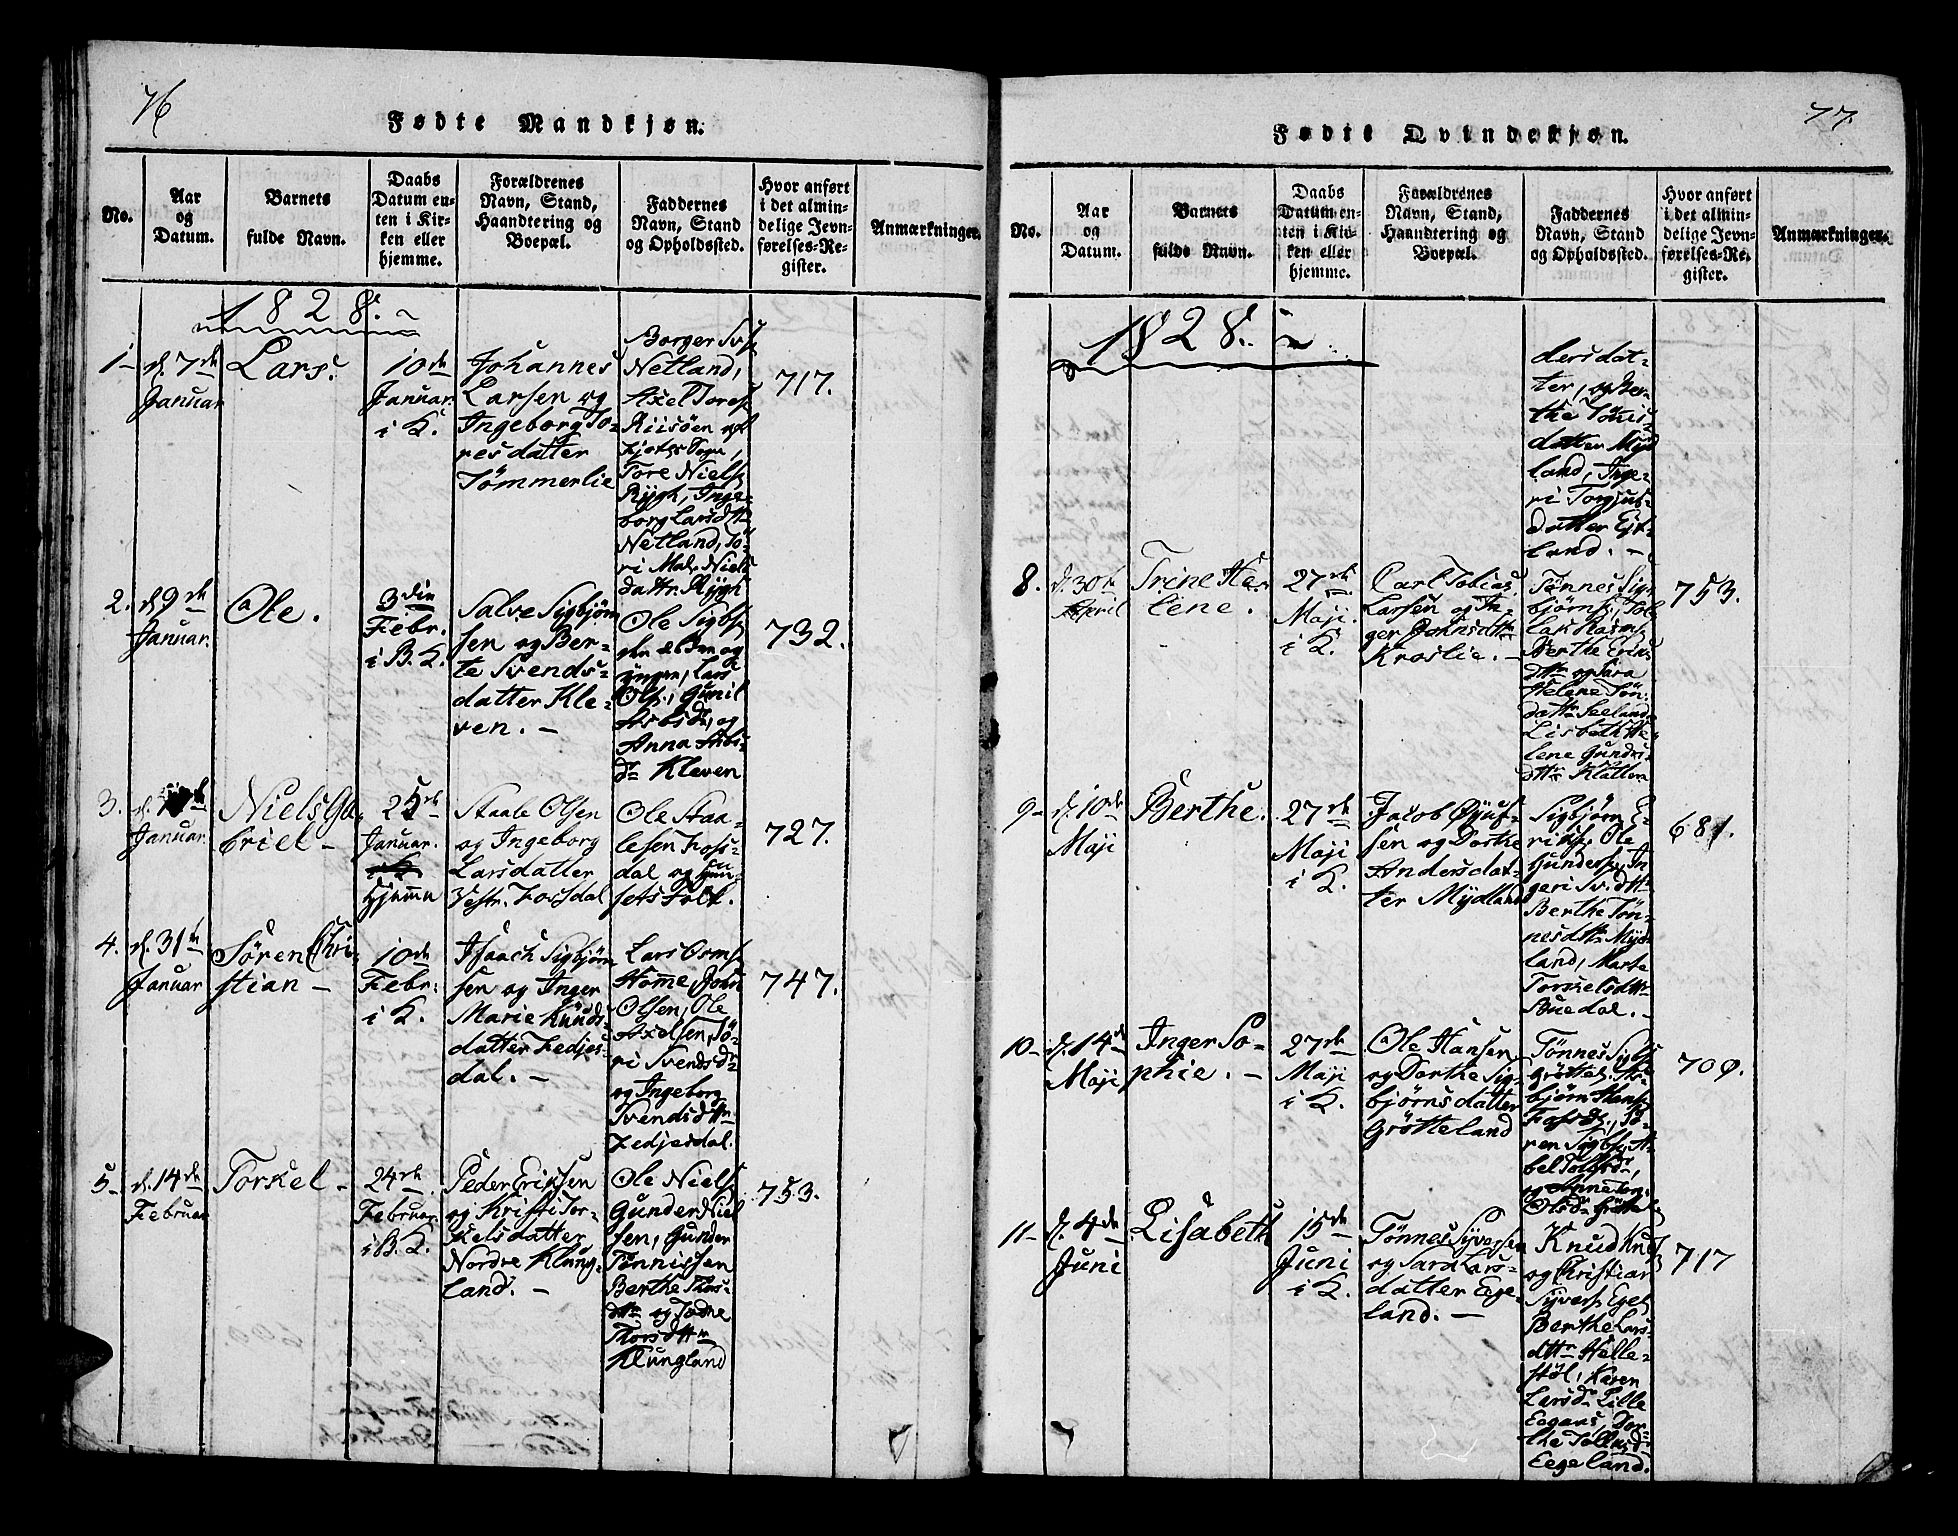 76
Fødte Mandkjøn.
No.
Aar
og
Datum.
Barnets
fulde Navn.
Daabs
Datum en-
ten i Kir-
ken eller
hjemme.
Forældrenes
Navn, Stand,
Haandtering og
Boepæl.
Faddernes
Navn, Stand
og Opholdssted.
Hvor anført
i det almin-
delige Jevn-
førelses-Re-
gister.
Anmærkninger.
1828.
1
d. 7de
Januar
Lars.
10de
Januar.
i K.
Johannes
Larsen og
Ingeborg To-
resdatter
Tömmerlie
Borger
Netland,
Axel Tores.
Riisöen
Tore Niels.
Rÿgh, Inge-
borg Larsdttr
Netland, To-
ri Mal. Niels
dattr. Rÿgh
717.
2.
d. 9de
Januar.
Ole.
3die
Febr.
i B. K.
Salve Sigbjörn
sen og Ber-
te Svends-
datter Kle-
ven. -
Ole Sigbs.
den ældre og
ÿngere, Lars
Ols., Gunil
og
Anna
dr Kleven
732.
3.
Januar.
Niels Ga-
briel -
25de
Januar.
Hjemme
Staale Olsen
og Ingeborg
Larsdatter
Vestr. Fossdal
Ole Staa-
lesen Foss-
dal og Huu-
sets Folk.
727.
4.
d. 31te
Januar
Sören Chri-
stian -
10de
Febr.
i K.
Isaach Sigbjörn
sen og Inger
Marie Knuds-
datter Fedjes-
dal. -
Lars Orms.
Home, John
Olsen, Ole
Axelsen, Tö-
ri Svendsdr
og Ingeborg
Svendsdttr
Fedjesdal.
747.
5
d. 14de
Februar
Torkel -
24de
Februar.
i B. K.
Peder Eriksen
og Kristi Tor-
kelsdatter
Nordre Klung-
land. -
Ole Niels.
Gunder Niel
sen, Gunder
Tönnissen
Berthe Thors-
dttr og Todne
Thorsdttr
Klungland
753.
77.
Fødte Qvindekjøn.
No.
Aar
og
Datum.
Barnets
fulde Navn.
Daabs
Datum en-
ten i Kir-
ken eller
hjemme.
Forældrenes
Navn, Stand,
Haandtering og
Boepæl.
Faddernes
Navn, Stand
og Opholdssted.
Hvor anført
i det almin-
delige Jevn-
førelses-Re-
gister.
Anmærkninger.
1828.
dersdat-
ter, og Ber-
the Tönis-
datter Mÿd
land, Inge-
ri Torgjus-
datter Ejt-
land. -
8.
d. 30te
April
Trine He-
lene.
27de
Maji.
i K.
Carl Tobias
Larsen og In-
ger Johnsdttr
Kroslie. -
Tönnes Sig-
björns.
Berthe Eriks
dttr og Sara
Helene Tön.
dattr Seeland
Lisbeth He-
lene Gunds.
dttr Klatten
753.
9
d. 10de
Maji
Berthe.
27de
Maji
i K.
Jacob Oÿuf-
sen og Dorthe
Andersdat-
ter Mÿdland
Sigbjörn E-
riks., Ole
Gunders., In-
geri Sv.dttr
Berthe Tön-
nesdttr Mÿd
land, Marte
Torkelsdttr
Stuedal. -
681.
10
d. 14de
Maji
Inger So-
phie. -
27de
Maji
i K.
Ole Hansen
og Dorthe Sig-
björnsdatter
Grötteland
Tönnes Sigbs.
Gröttel.
björn Hans.
Fossd., Sö-
ren Sigbs., A-
bel
og Anne
Olsdr Gröttel.
709.
11
d. 4de
Juni
Lisabeth
15de
Juni
i K.
Tönnes Sÿversen
og Sara Lars-
datter Ege-
land. -
Knud Knuds.
og Christian
Sÿvers. Egel.
Berthe Lars-
dttr Helle-
stöl, Karen
Larsdr Lille
Eegans, Dor-
the
Eegeland.
717